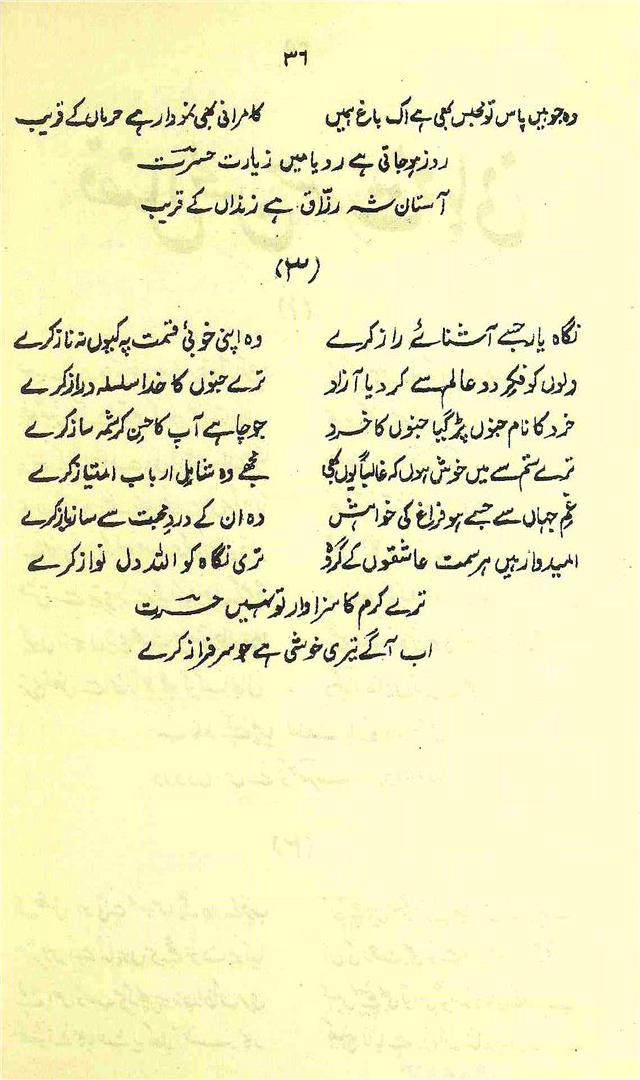 ۳۶
وہ جو ہیں پاس تو محبس بھی ہے اک باغ ہمیں کامرانی بھی نمودار ہے حرماں کے قریب
روز ہو جاتی ہے رویا میں زیارت حسرتؔ
آستانِ شہ رزّاق ہے زنداں کے قریب
(۳)
نگاہ یار جسے آشنائے راز کرے وہ اپنی خوبیٔ قسمت پہ کیوں نہ ناز کرے
دلوں کو فکرِ دو عالم سے کر دیا آزاد ترے جنوں کا خدا سلسلہ دراز کرے
خرد کا نام جنوں پڑ گیا جنوں کا خرد جو چاہے آپ کا حسنِ کرشمہ ساز کرے
ترے ستم سے میں خوش ہوں کہ غالباً یوں بھی مجھے وہ شاملِ ارباب امتیاز کرے
غمِ جہاں سے جسے ہو فراغ کی خواہش وہ ان کے دردِ محبت سے ساز باز کرے
امیدوار ہیں ہر سمت عاشقوں کے گروہ تری نگاہ کو اللہ دل نواز کرے
ترے کرم کا سزاوار تو نہیں حسرتؔ
اب آگے تیری خوشی ہے جو سرفراز کرے